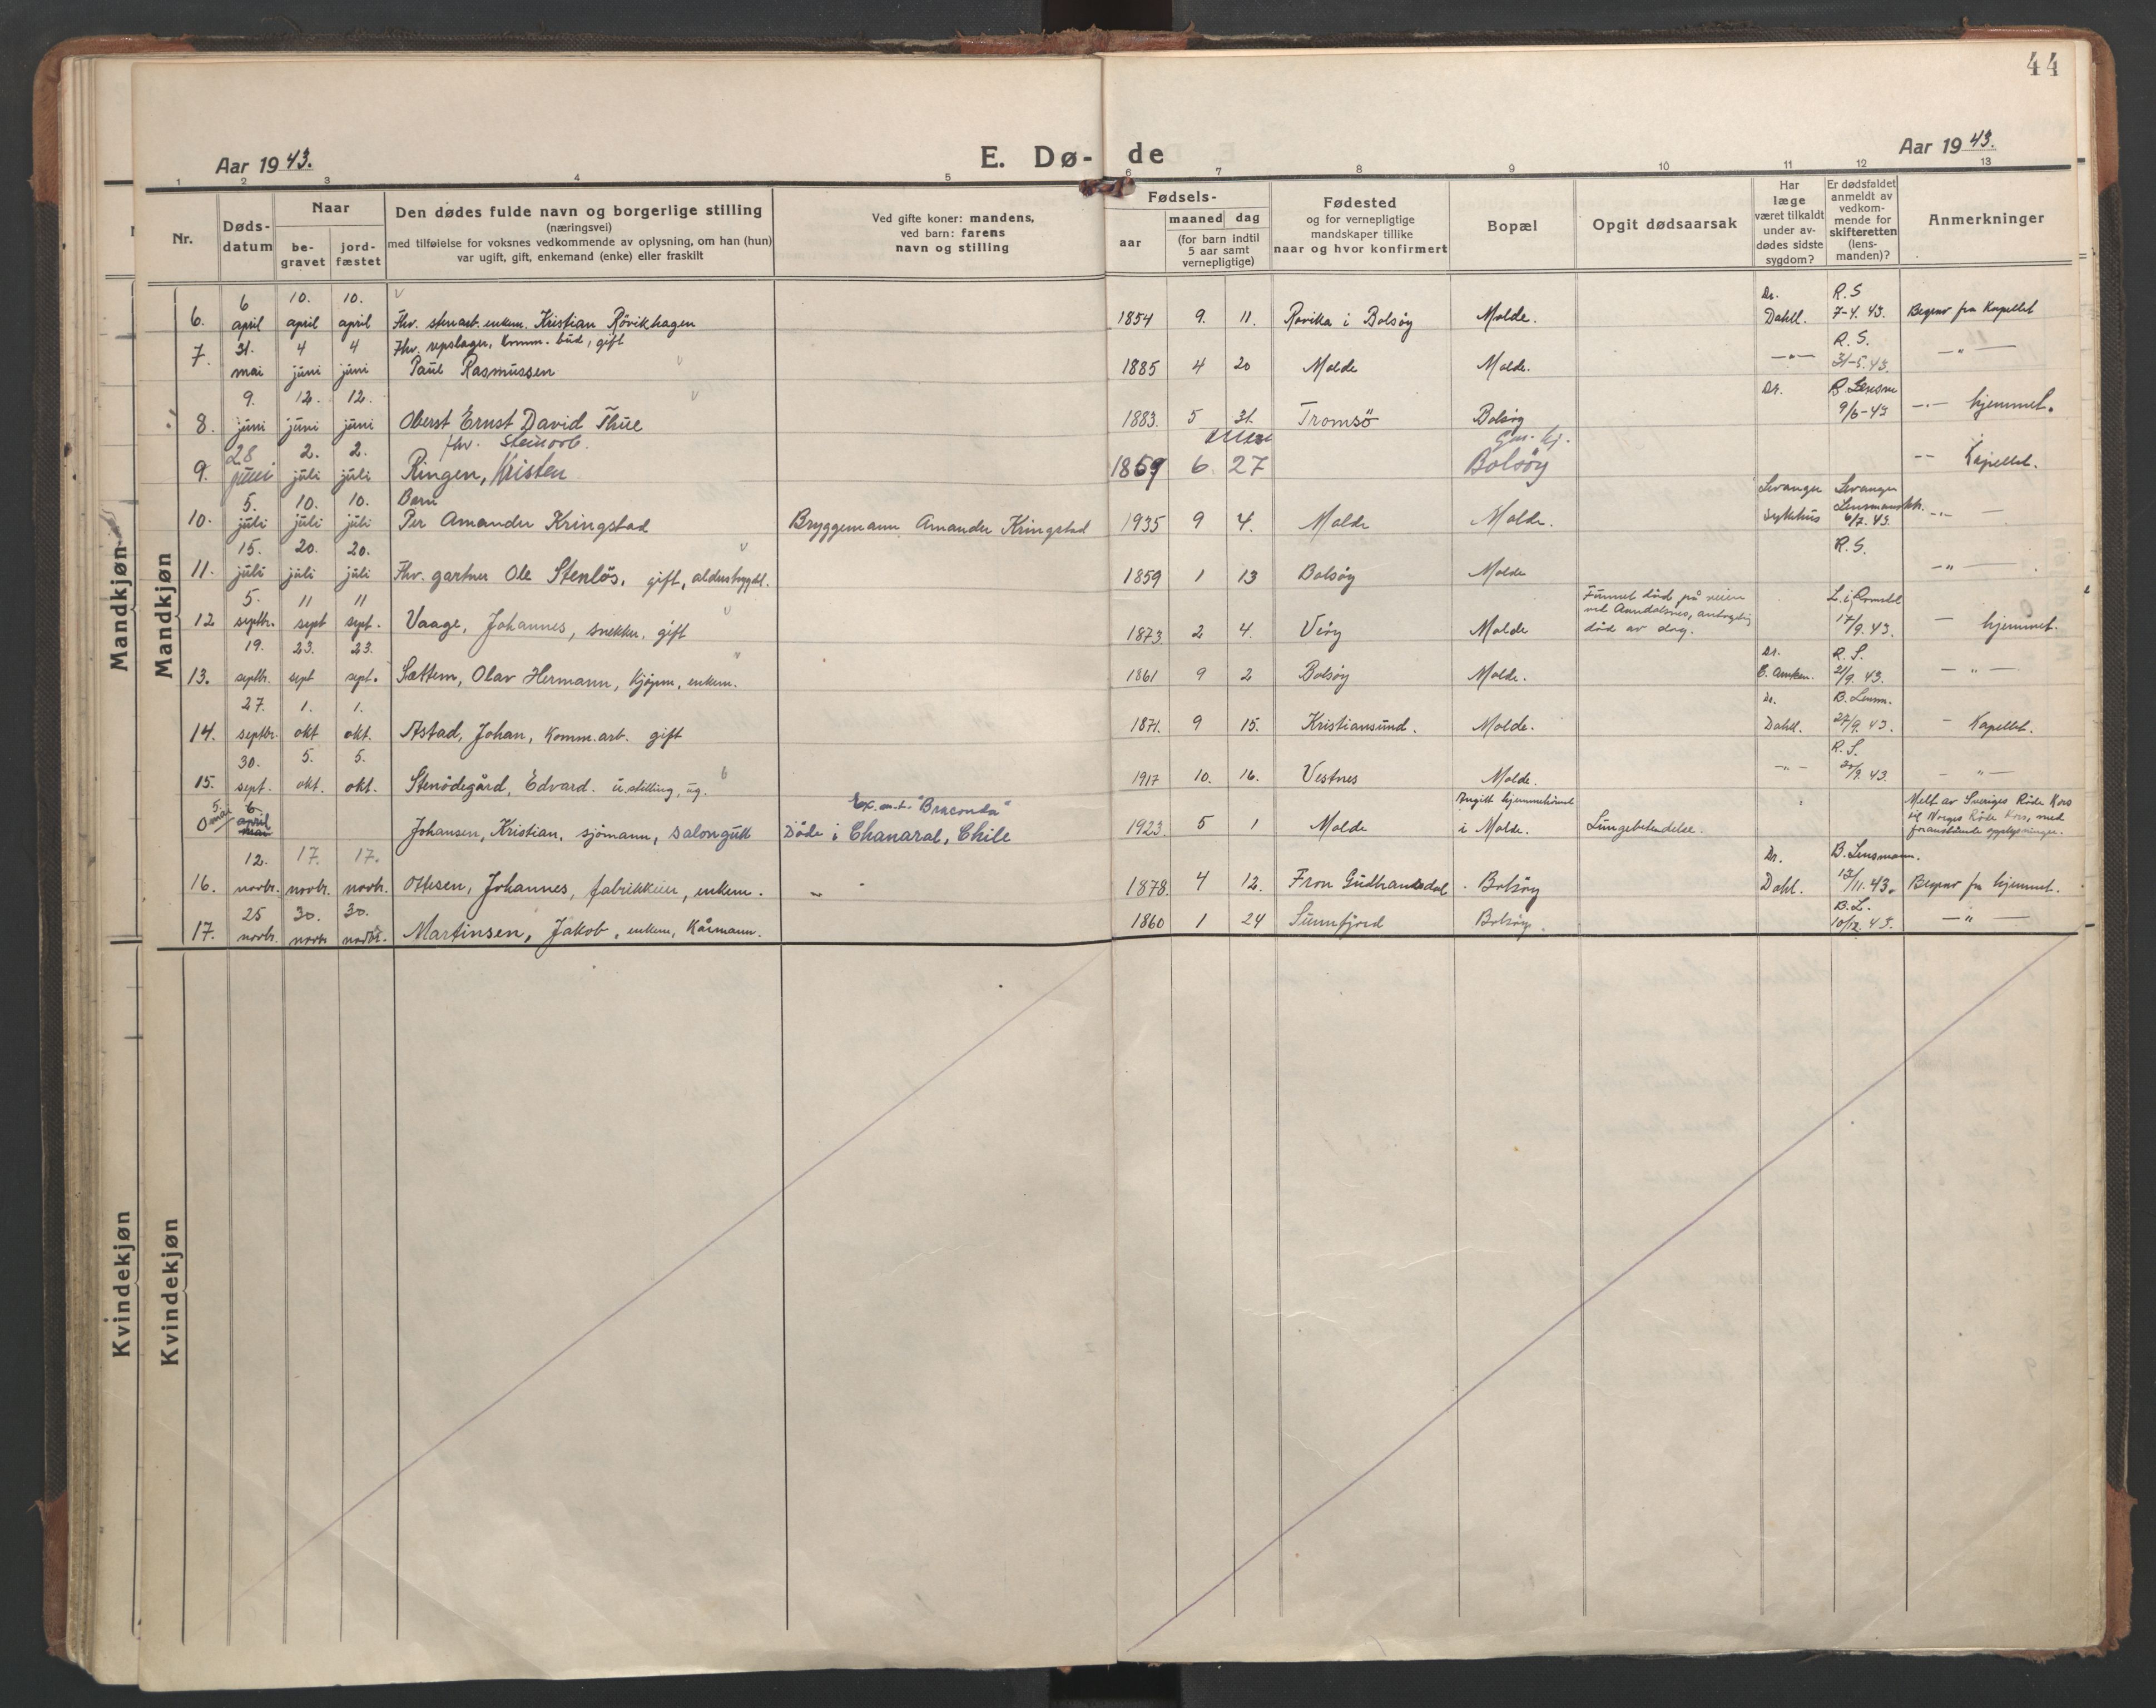 44
Aar 1943.
E. Dø-
de
Aar 1943.
1 2 3 4 5 6 7 8 9 10 11 12 13
Nr.
Døds-
datum
Naar
be-
gravet
jord-
fæstet
Den dødes fulde navn og borgerlige stilling
(næringsvei)
med tilføielse for voksnes vedkommende av oplysning, om han (hun)
var ugift, gift, enkemand (enke) eller fraskilt
Ved gifte koner: mandens,
ved barn: farens
navn og stilling
Fødsels-
aar
maaned dag
(for barn indtil
5 aar samt
vernepligtige)
Fødested
og for vernepligtige
mandskaper tillike
naar og hvor konfirmert
Bopæl
Opgit dødsaarsak
Har
læge
været tilkaldt
under av-
dødes sidste
sygdom?
Er dødsfaldet
anmeldt av
vedkom-
mende for
skifteretten
(lens-
manden)?
Anmerkninger
Mandkjøn
Mandkjøn
6 10. 10. Dr. R.S
6. april april april Fhv. stenarb. enkem. Kristian Rövikhagen 1854 9. 11. Rovika i Bolsöy Molde. Dahll. 7-4. 43. Begrav fra Kapellet
31. 4 4 Fhv. repslager, komm. bud, gift R.S.
7. mai juni juni Paul Rasmussen 1885 4 20 Molde Molde. —"— 31-5.43. —"—
9. 12. 12. Dr. B. Lensm
8. juni juni juni Oberst Ernst David Thue 1883. 5 31. Tromsö Bolsöy 9/6-43 —"— hjemmet.
28 2. 2. fhv. steinarb.
9. juni juli juli Ringen, Kristen 1859 6 27 Bolsöy -- Kapellet.
5. 10. 10. Barn Levanger Levanger
10. juli juli juli Per Amandu Kringstad Bryggemann Amandu Kringstad 1935 9 4. Molde Molde. sykehus Lensmansktr. 6/7.43. —"—
15. 20. 20. R.S.
11. juli juli juli Fhv. gartner Ole Stenlös, gift, alderstrygdet. 1859 1 13 Bolsöy Molde —"—
5. 11 11 Funnet död på veien
12 septbr. sept sept. Vaage, Johannes, snekker, gift 1873 2 4. Veöy Molde ved Aandalsnes, antagelig död av slag. 17/9. 43. — hjemmet.
19. 23. 23. Dr. R.S.
13. septbr. sept sept. Sættem, Olav Hermann, kjöpm, enkem. 1861 9 2 Bolsöy Molde. 21/9. 43. —"—
27. 1. 1. Dr. B. Lensm.
14. septbr. okt okt. Astad, Johan, Komm.arb. gift 1871. 9 15. Kristiansund. Molde. Dahll. 27/9. 43. — Kapellet.
30. 5. 5. R.S.
15. sept. okt. okt. Stenödegård, Edvard. u.stilling, ug. 1917 10. 16. Vestnes Molde. —"— 30/9. 43. —"—
5. mai 6 april mai Ex. m.t. "Braconda" Angitt hjemmehörende Melt av Sveriges Röde Kors
0 Johansen, Kristian, sjömann, salongutt Döde i Chanaral, Chile 1923. 5 1 Molde i Molde. Lungebetendelse. til Norges Röde Kors, med
foranstående opplysninger.
12. 17. 17. Dr. B. Lensmann.
16. novbr. novbr. novbr. Ottesen, Johannes, fabrikkeier, enkem. 1878. 4 12. Fron Gudbrandsdal Bolsöy Dahl. 12/11. 43. Begrav fra hjemmet.
25 30. 30. B.L.
17. novbr. novbr novbr. Martinsen, Jakob, enkem, Kårmann. 1860 1 24 Sunnfjord Bolsöy. 10/12. 43. —"—
Kvindekjøn
Kvindekjøn